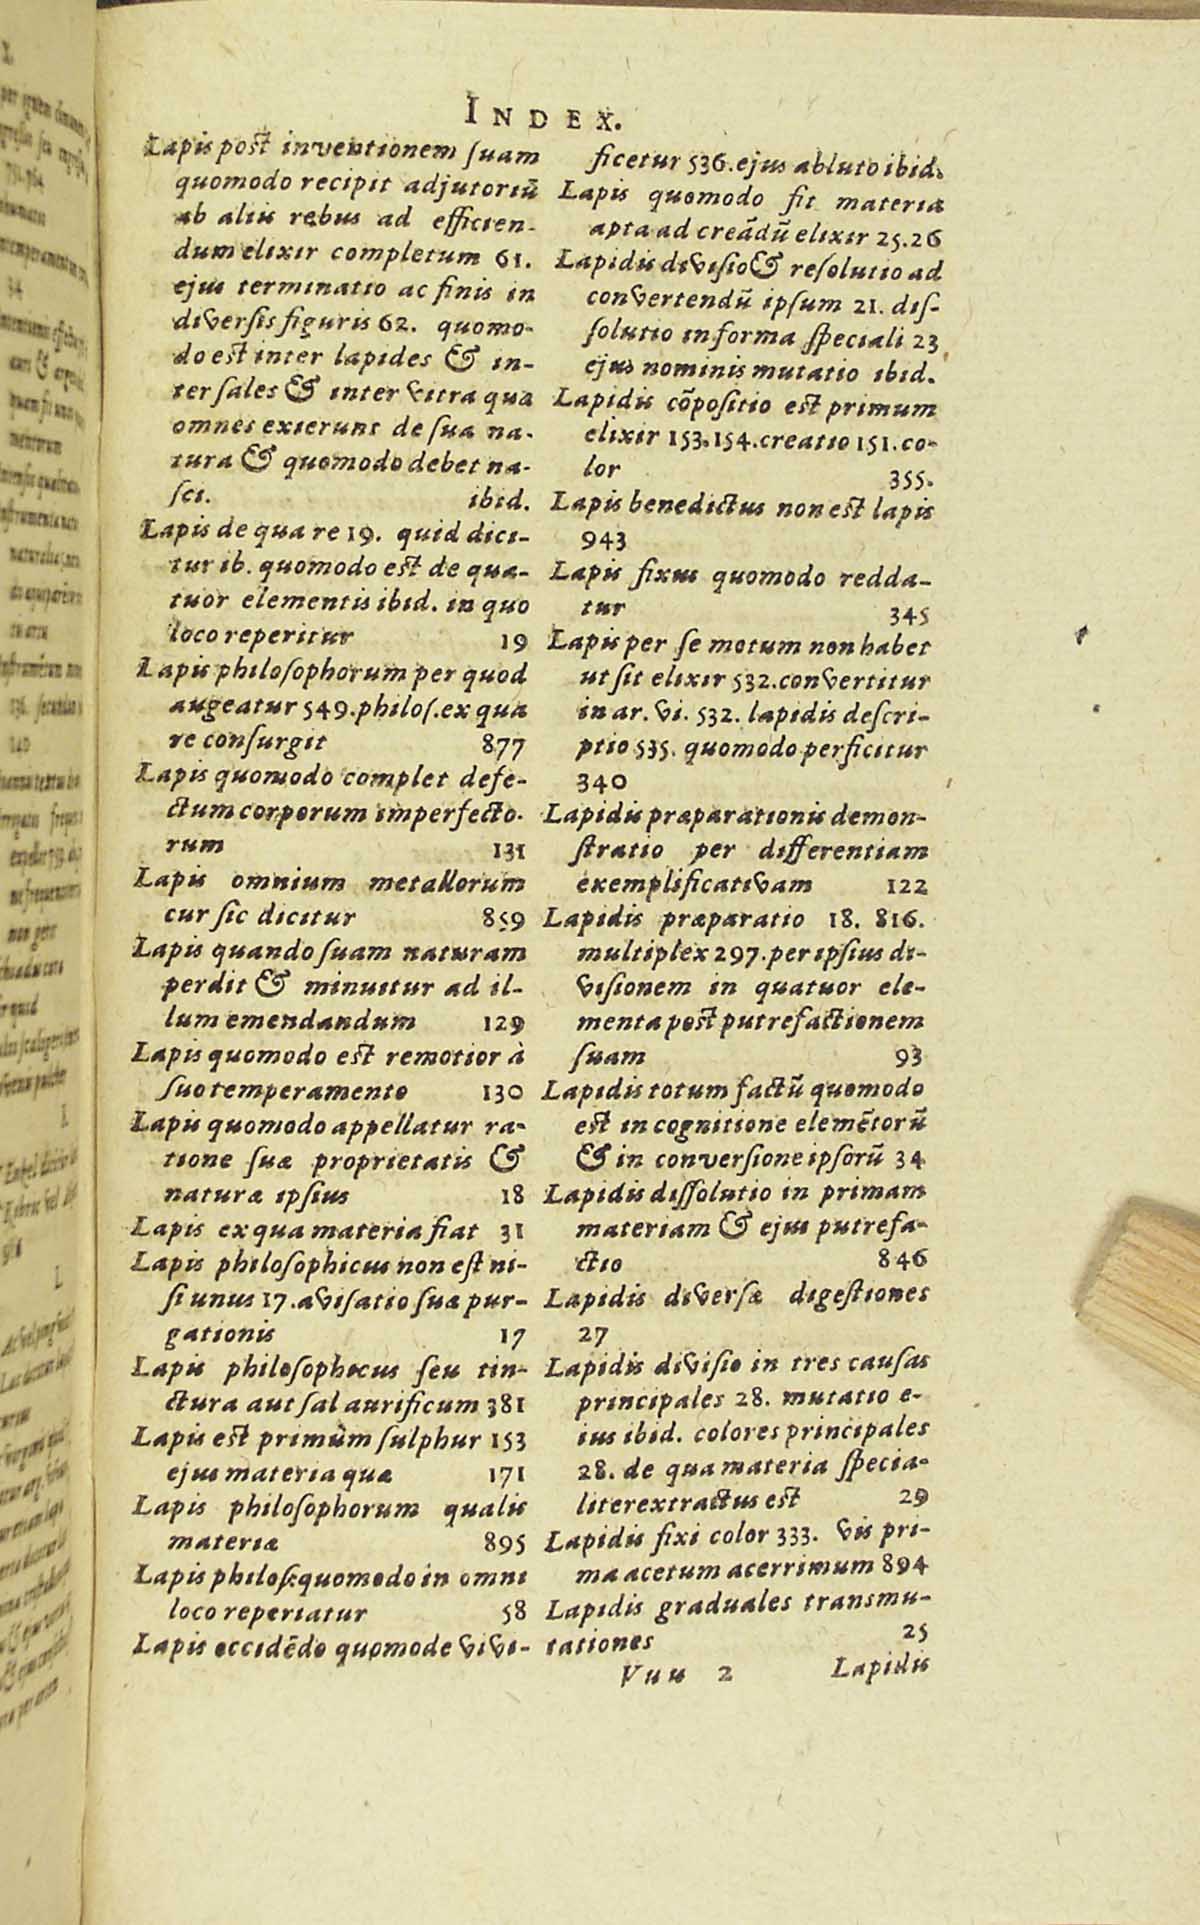 INDEX.
Lapis post inventionem suam
quomodo recipit adjutoriū
ab aliis rebus ad efficien-
dum elixir completum 61.
ejus terminatio ac finis in
diversis figuris 62. quomo-
do est inter lapides & in-
ter sales & inter vitra qua
omnes exierunt de sua na-
tura & quomodo debet na-
sci. ibid.
Lapis de qua re 19. quid dici-
tur ib. quomodo est de qua-
tuor elementis ibid. in quo
loco reperitur 19
Lapis philosophorum per quod
augeatur 549. philos. ex qua
re consurgit 877
Lapis quomodo complet defe-
ctum corporum imperfecto-
rum 131
Lapis omnium metallorum
cur sic dicitur 859
Lapis quando suam naturam
perdit & minuitur ad il-
lum emendandum 129
Lapis quomodo est remotior à
suo temperamento 130
Lapis quomodo appellatur ra-
tione suæ proprietatis &
naturæ ipsius 18
Lapis ex qua materia fiat 31
Lapis philosophicus non est ni-
si unus 17. avisatio suæ pur-
gationis 17
Lapis philosophocus seu tin-
ctura aut sal aurificum 381
Lapis est primùm sulphur 153
ejus materia quæ 171
Lapis philosophorum qualis
materiæ 895
Lapis philos. quomodo in omni
loco reperiatur 58
Lapis occidēdo quomode vivi-
ficetur 536. ejus abluto ibid.
Lapis quomodo fit materia
apta ad creādū elixir 25.26
Lapidis divisio & resolutio ad
convertendū ipsum 21. dis-
solutio in forma speciali 23
ejus nominis mutatio ibid.
Lapidis cōpositio est primum
elixir 153. 154. creatio 151. co-
lor 355.
Lapis benedictus non est lapis
943
Lapis fixus quomodo redda-
tur 345
Lapis per se motum non habet
ut sit elixir 532. convertitur
in ar. vi. 532. lapidis descri-
ptio 535. quomodo perficitur
340
Lapidis præparationis demon-
stratio per differentiam
exemplificativam 122
Lapidis præparatio 18. 816.
multiplex 297. per ipsius di-
visionem in quatuor ele-
menta post putrefactionem
suam 93
Lapidis totum factū quomodo
est in cognitione elemētorū
& in conversione ipsorū 34
Lapidis dissolutio in primam
materiam & ejus putrefa-
ctio 846
Lapidis diversæ digestiones
27
Lapidis divisio in tres causas
principales 28. mutatio e-
ius ibid. colores principales
28. de qua materia specia-
liter extractus est 29
Lapidis fixi color 333. vis pri-
ma acetum acerrimum 894
Lapidis graduales transmu-
tationes 25
Vuu 2 Lapidis